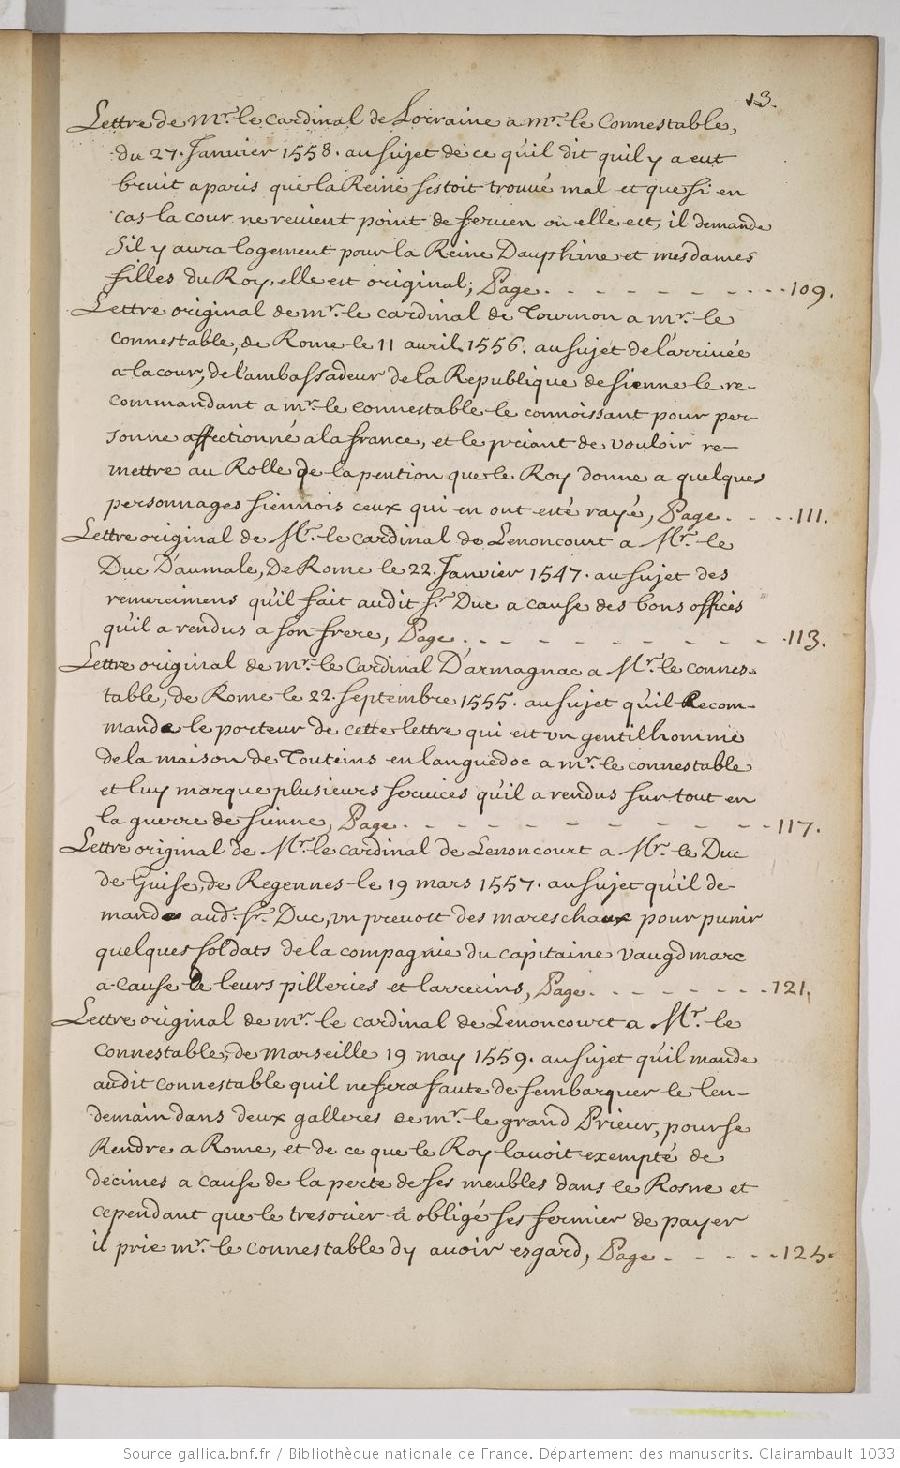 13.
Lettre de mr. le cardinal de Lorraine a mr. le Connestable,
du 27. Janvier 1558. au sujet de ce qu'il dit quil y a eut
bruit a paris que la Reine sestoit trouvé mal et que si en
cas la cour ne revient point de ferrien ou elle est, il demande
s'il y aura logement pour la Reine Dauphine et mesdames
filles du Roy, elle est original, Page. - - - - - - - - 109.
Lettre original de mr. le cardinal de Tournon a mr. le
connestable, de Rome le 11 avril 1556. au sujet de l'arrivée
a la cour, de l'ambassadeur de la Republique de Sienne le re-
commandant a mr. le connestable le connoissant pour per-
sonne affectionné a la france, et le priant de vouloir re-
mettre au Rolle de la pention que le Roy donne a quelques
personnages siennois ceux qui en ont esté rayé, Page. - - - 111.
Lettre original de Mr. le cardinal de Lenoncourt a Mr. le
Duc D'aumale, De Rome le 22 Janvier 1547. au sujet des
remercimens qu'il fait audit sr. Duc a cause des bons offices
qu'il a rendus a son frere, Page. - - - - - - - - - 113.
Lettre original de mr. le Cardinal D'armagnac a Mr. le connes-
table, de Rome le 22. septembre 1555. au sujet qu'il Recom-
mande le porteur de cette lettre qui est un gentilhomme
de la maison de Touteins en languedoc a mr. le connestable
et luy marque plusieurs services qu'il a rendus sur tout en
la guerre de sienne, Page. - - - - - - - - - 117.
Lettre original de Mr. le cardinal de Lenoncourt a Mr. le Duc
de Guise, de Regennes le 19 mars 1557. au sujet qu'il de-
mande aud. sr. Duc, un prevost des mareschaux pour punir
quelques soldats de la compagnie du capitaine vaugdmarc
a cause de leurs pilleries et larrecins, Page. - - - - - - 121,
Lettre original de mr. le cardinal de Lenoncourt a Mr. le
connestable, de marseille 19 may 1559. au sujet qu'il mande
audit connestable quil ne fera faute de sembarquer le len-
demain dans deux galleres de mr. le grand Prieur, pour se
Rendre a Rome, et de ce que le Roy lavoit exempté de
decimes a cause de la perte de ses meubles dans le Rosne et
cependant que le tresorier a obligé ses fermier de payer
il prie mr. le connestable dy avoir esgard, Page - - - - - 125.
Source gallica.bnf.fr / Bibliothèque nationale de France. Département des manuscrits. Clairambault 1033